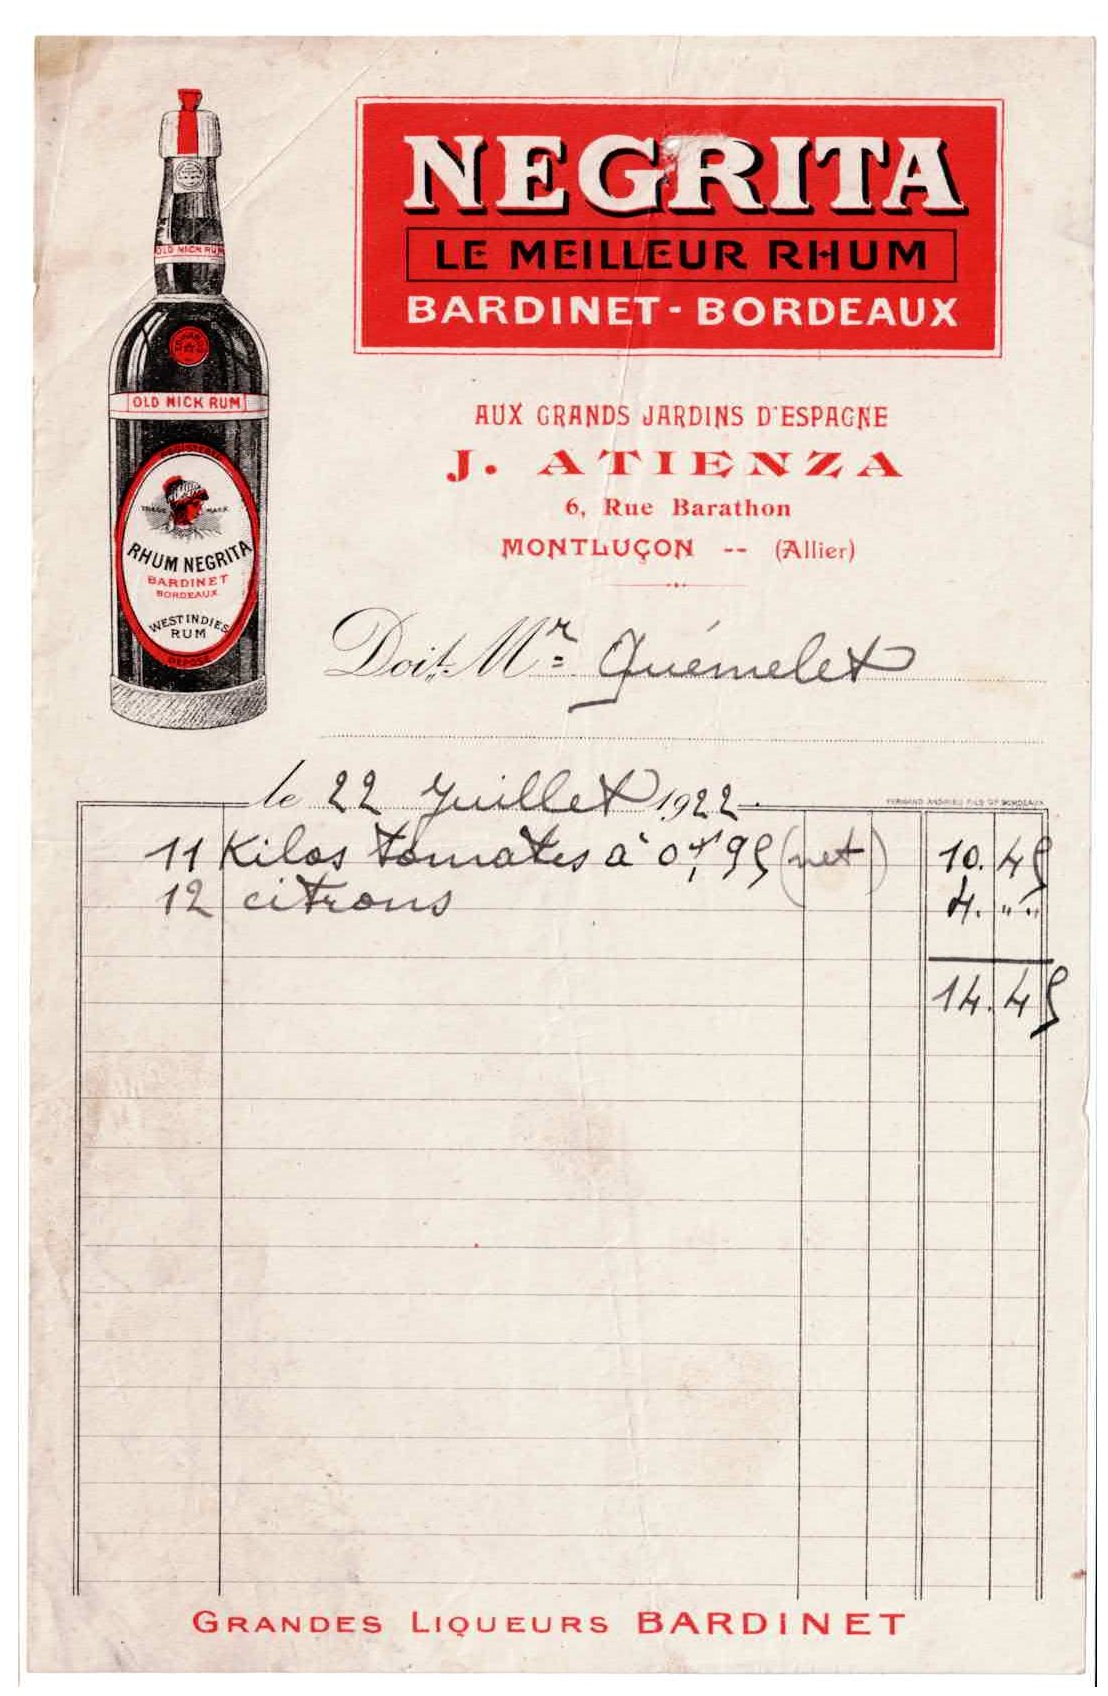 NEGRITA
LE MEILLEUR RHUM
BARDINET - BORDEAUX
OLD NICK RUM
OLD NICK RUM
TRADE MARK
RHUM NEGRITA
BARDINET
BORDEAUX
WEST INDIES
RUM
AUX GRANDS JARDINS D'ESPAGNE
J. ATIENZA
6, Rue Barathon
MONTLUÇON -- (Allier)
Doit Mr Quémelet
le 22 Juillet 1922
FERNAND ANDRIEU FILS Sr BORDEAUX
11 Kilos tomates à 0f,95 (net) 10.45
12 citrons 4. " "
14.45
GRANDES LIQUEURS BARDINET